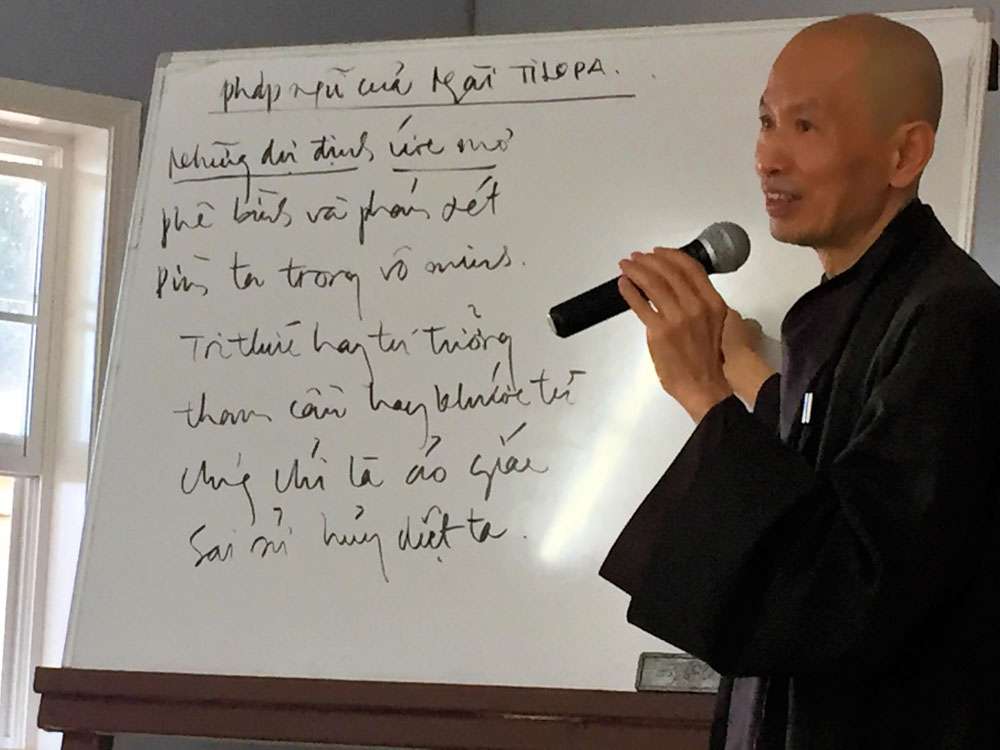 pháp ngữ của Ngài TILOPA.
Những dự định ước mơ
phê bình và phán xét
Dìm ta trong vô minh.
Tri thức hay tư tưởng
tham cầu hay khước từ
chúng chỉ là ảo giác
Sai sử hủy diệt ta.